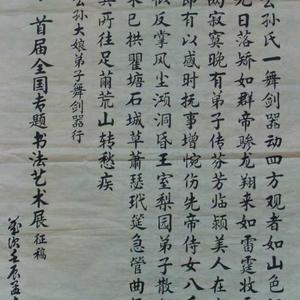 公孙氏一舞剑器动四方观者如山色
九日落矫如群帝骖龙翔来如雷霆收
寂寞晚有弟子传芬芳临颍美人在
即有以感时抚事增惋伤先帝侍女八
似反掌风尘澒洞昏王室梨园弟子散
木已拱瞿塘石城草萧瑟玳筵急管曲
其所往足茧荒山转愁疾
公孙大娘弟子舞剑器行
首届全国专题书法艺术展征稿
岁次壬辰孟